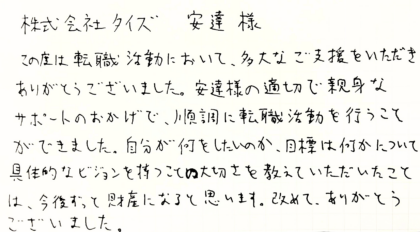 株式会社タイズ　安達様
この度は転職活動において、多大なご支援をいただき
ありがとうございました。安達様の適切で親身な
サポートのおかげで、順調に転職活動を行うこと
ができました。自分が何をしたいのか、目標は何かについて
具体的なビジョンを持つことの大切さを教えていただいたこと
は、今後ずっと財産になると思います。改めて、ありがとう
ございました。